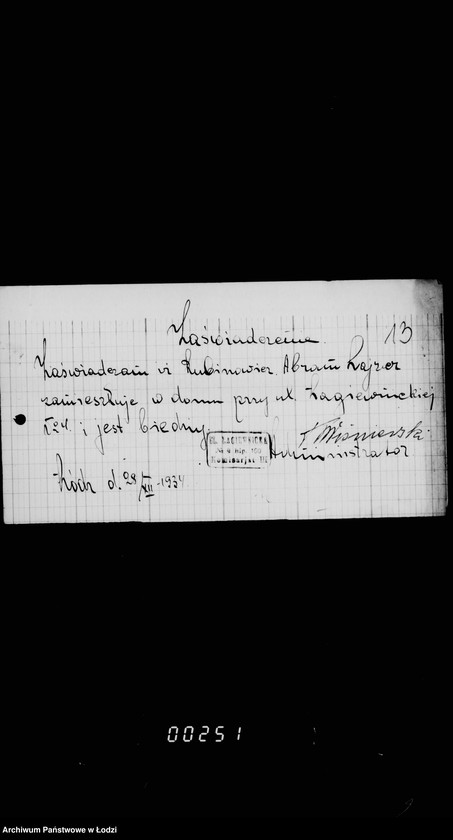 Zaświadczenie. 13
Zaświadczam iż Rubinowicz Abram Lajzer
zamieszkuje w domu przy ul. Łagiewnickiej
№ 4. i jest biedny.
UL. ŁAGIEWNICKA
№ 4 hip. 160
Komisarjat III
Wiśniewska
Administrator
Łódź d. 28/XII-1934
00251
Archiwum Państwowe w Łodzi